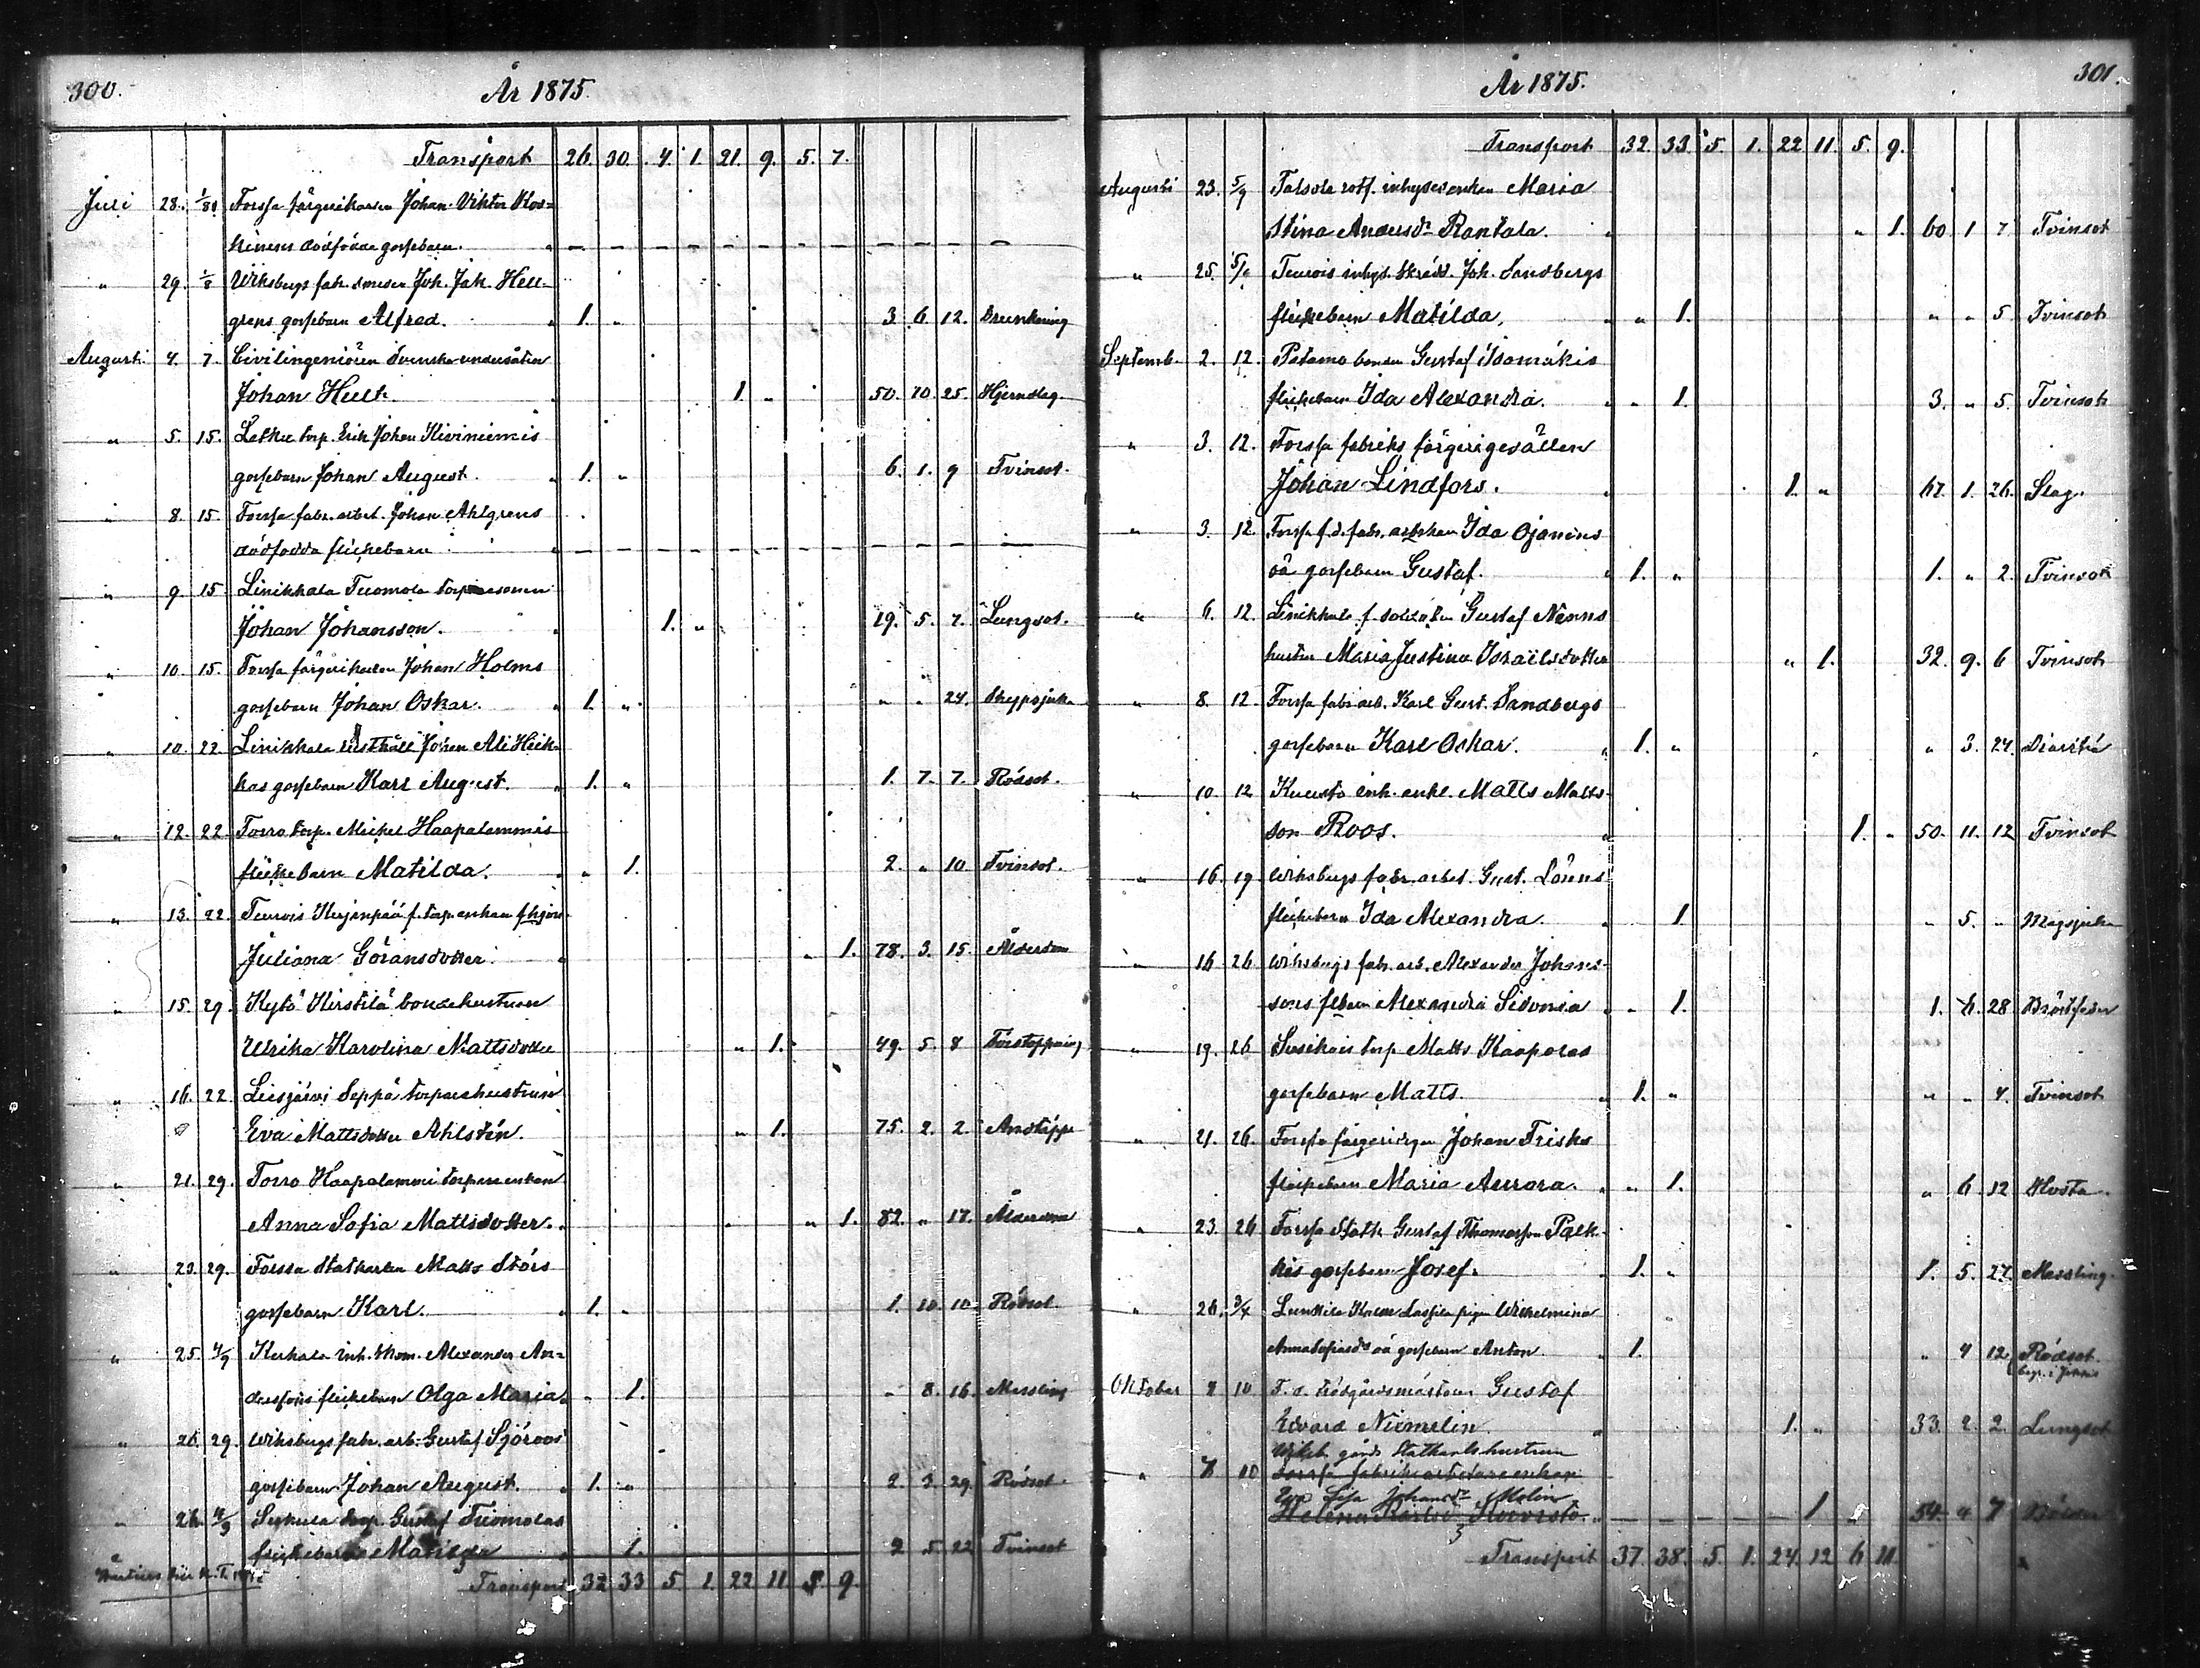 300.
År 1875.
Transport 26. 30. 4. 1. 21. 9. 5. 7.
Juli 28. 1/8 Forssa färgerikarlen Johan Viktor Kos=
kinens dödfödda gossebarn. " — — — — — — — —
" 29. 1/8 Wiksbergs fabr. smeden Joh. Jak. Hell-
grens gossebarn Alfred. " 1. " 3. 6. 12. Drunkning
Augusti 4. 7. Civilingeniören Svenska undersåten
Johan Hult. 1. " 50. 10. 25. Hjernslag.
" 5. 15. Letku torp. Erik Johan Kiviniemis
gossebarn Johan August. " 1. " 6. 1. 9 Tvinsot.
" 8. 15. Forssa fabr. arbet. Johan Ahlgrens
dödfödda flickebarn " — — — — — — — —
" 9. 15. Linikkala Tuomola torparesonen
Johan Johansson. 1. " 19. 5. 7. Lungsot.
" 10. 15. Forssa färgerikarlen Johan Holms
gossebarn Johan Oskar. " 1. " " " 24. Skeppsjuka
" 10. 22. Linikkala rusthåll. Johan Ali Heik-
kas gossebarn Karl August. " 1. " 1. 7. 7. Rödsot.
" 12. 22. Torro torp. Mickel Haapalammis
flickebarn Matilda. " " 1. 2. " 10. Tvinsot.
" 13. 22. Teuroi Kerjenpää f. torp. enkan f. hjon
Juliana Göransdotter. " 1. 78. 3. 15. Ålderdom
" 15. 29. Kytö Kirstilä bondehustrun
Ulrika Karolina Mattsdotter " 1. 49. 5. 8 Förstoppning
" 16. 22. Liesjärvi Seppä torparehustrun
Eva Mattsdotter Ahlstén. " 1. 75. 2. 2. Andtäppa
" 21. 29. Torro Haapalammi torpareenkan
Anna Sofia Mattsdotter. " 1. 82. " 17. Ålderdom
" 23. 29. Forssa statkarlen Matts Störs
gossebarn Karl. " 1. " 1. 10. 10. Rödsot.
" 25. 4/9 Kuhala inh. skom. Alexander An=
derssons flickebarn Olga Maria. " 1. " 8. 16. Messling
" 26. 29. Wiksbergs fabr. arb. Gustaf Sjöroos
gossebarn Johan August. " 1. " 2. 3. 29. Rödsot.
" 26. 4/9 Sukula torp. Gustaf Tuomolas
flickebarn Matilda " 1. 2. 5. 22. Tvinsot
Transport 32 33 5. 1. 22 11. 5. 9.
301.
År 1875.
Transport 32. 33. 5. 1. 22 11. 5. 9.
Augusti 23. 5/9 Talsola rotf. inhysesenkan Maria
Stina Andersdr Rantala. " 1. 60 1 7. Tvinsot
" 25. 5/9 Teurois inhys. skrädd. Joh. Sandbergs
flickebarn Matilda. " " 1. " " 5 Tvinsot
Septemb. 2. 12. Patamo bonden Gustaf Isomäkis
flickebarn Ida Alexandra. " " 1. 3. " 5. Tvinsot
" 3. 12. Forssa fabriks färgerigesällen
Johan Lindfors. " 1. " 67. 1. 26. Slag.
" 3. 12. Forssa f. d. fabr. arbskan Ida Ojanens
oä gossebarn Gustaf. " 1. " 1. " 2. Tvinsot
" 6. 12. Linikkala f. soldaten Gustaf Nenns
hustru Maria Justina Israelsdotter " 1. 32. 9. 6 Tvinsot
" 8. 12. Forssa fabr. arb. Karl Gust. Sandbergs
gossebarn Karl Oskar. " 1. " " 3. 24. Diarrhé
" 10. 12 Kuusto inh. enkl. Matts Matts-
son Roos. " 1. " 50. 11. 12 Tvinsot
" 16. 19 Wiksbergs fabr. arbet. Gust. Lönns
flickebarn Ida Alexandra. " 1. " 5. " Magsjuka
" 16 26 Wiksbergs fabr. arb. Alexander Johans-
sons flbarn Alexandra Sidonia " " 1. 1. 6. 28 Bröstfeber
" 19. 26 Susikais torp. Matts Kaaporas
gossebarn Matts. " 1. " " " 4. Tvinsot
" 21. 26. Forssa färgeridrgn Johan Frisks
flickebarn Maria Aurora. " " 1. " 6 12 Hosta.
" 23. 26 Forssa Statk. Gustaf Thomasson Palk-
kis gossebarn Josef. " 1. " 1. 5. 27. Messling.
" 26. 3/4 Lunkila Kalm Lassila pigan Wilhelmina
Annasofiasdr oä gossebarn Anton. " 1. " 4 12. Rödsot.
Oktober 4 10 F. d. trädgårdsmästaren Gustaf
Edvard Niemelin. " 1. " 33. 2. 2. Lungsot
Wiksb. gårds Statkarls hustrun
" 7 10 Forssa fabriksarbetareenkan
Eva Lisa Johansdr Molin
Helena Karlsdr Koivisto. " — — — — — 1 " 54. 4 7
Transport 37. 38. 5. 1. 24. 12 6 11